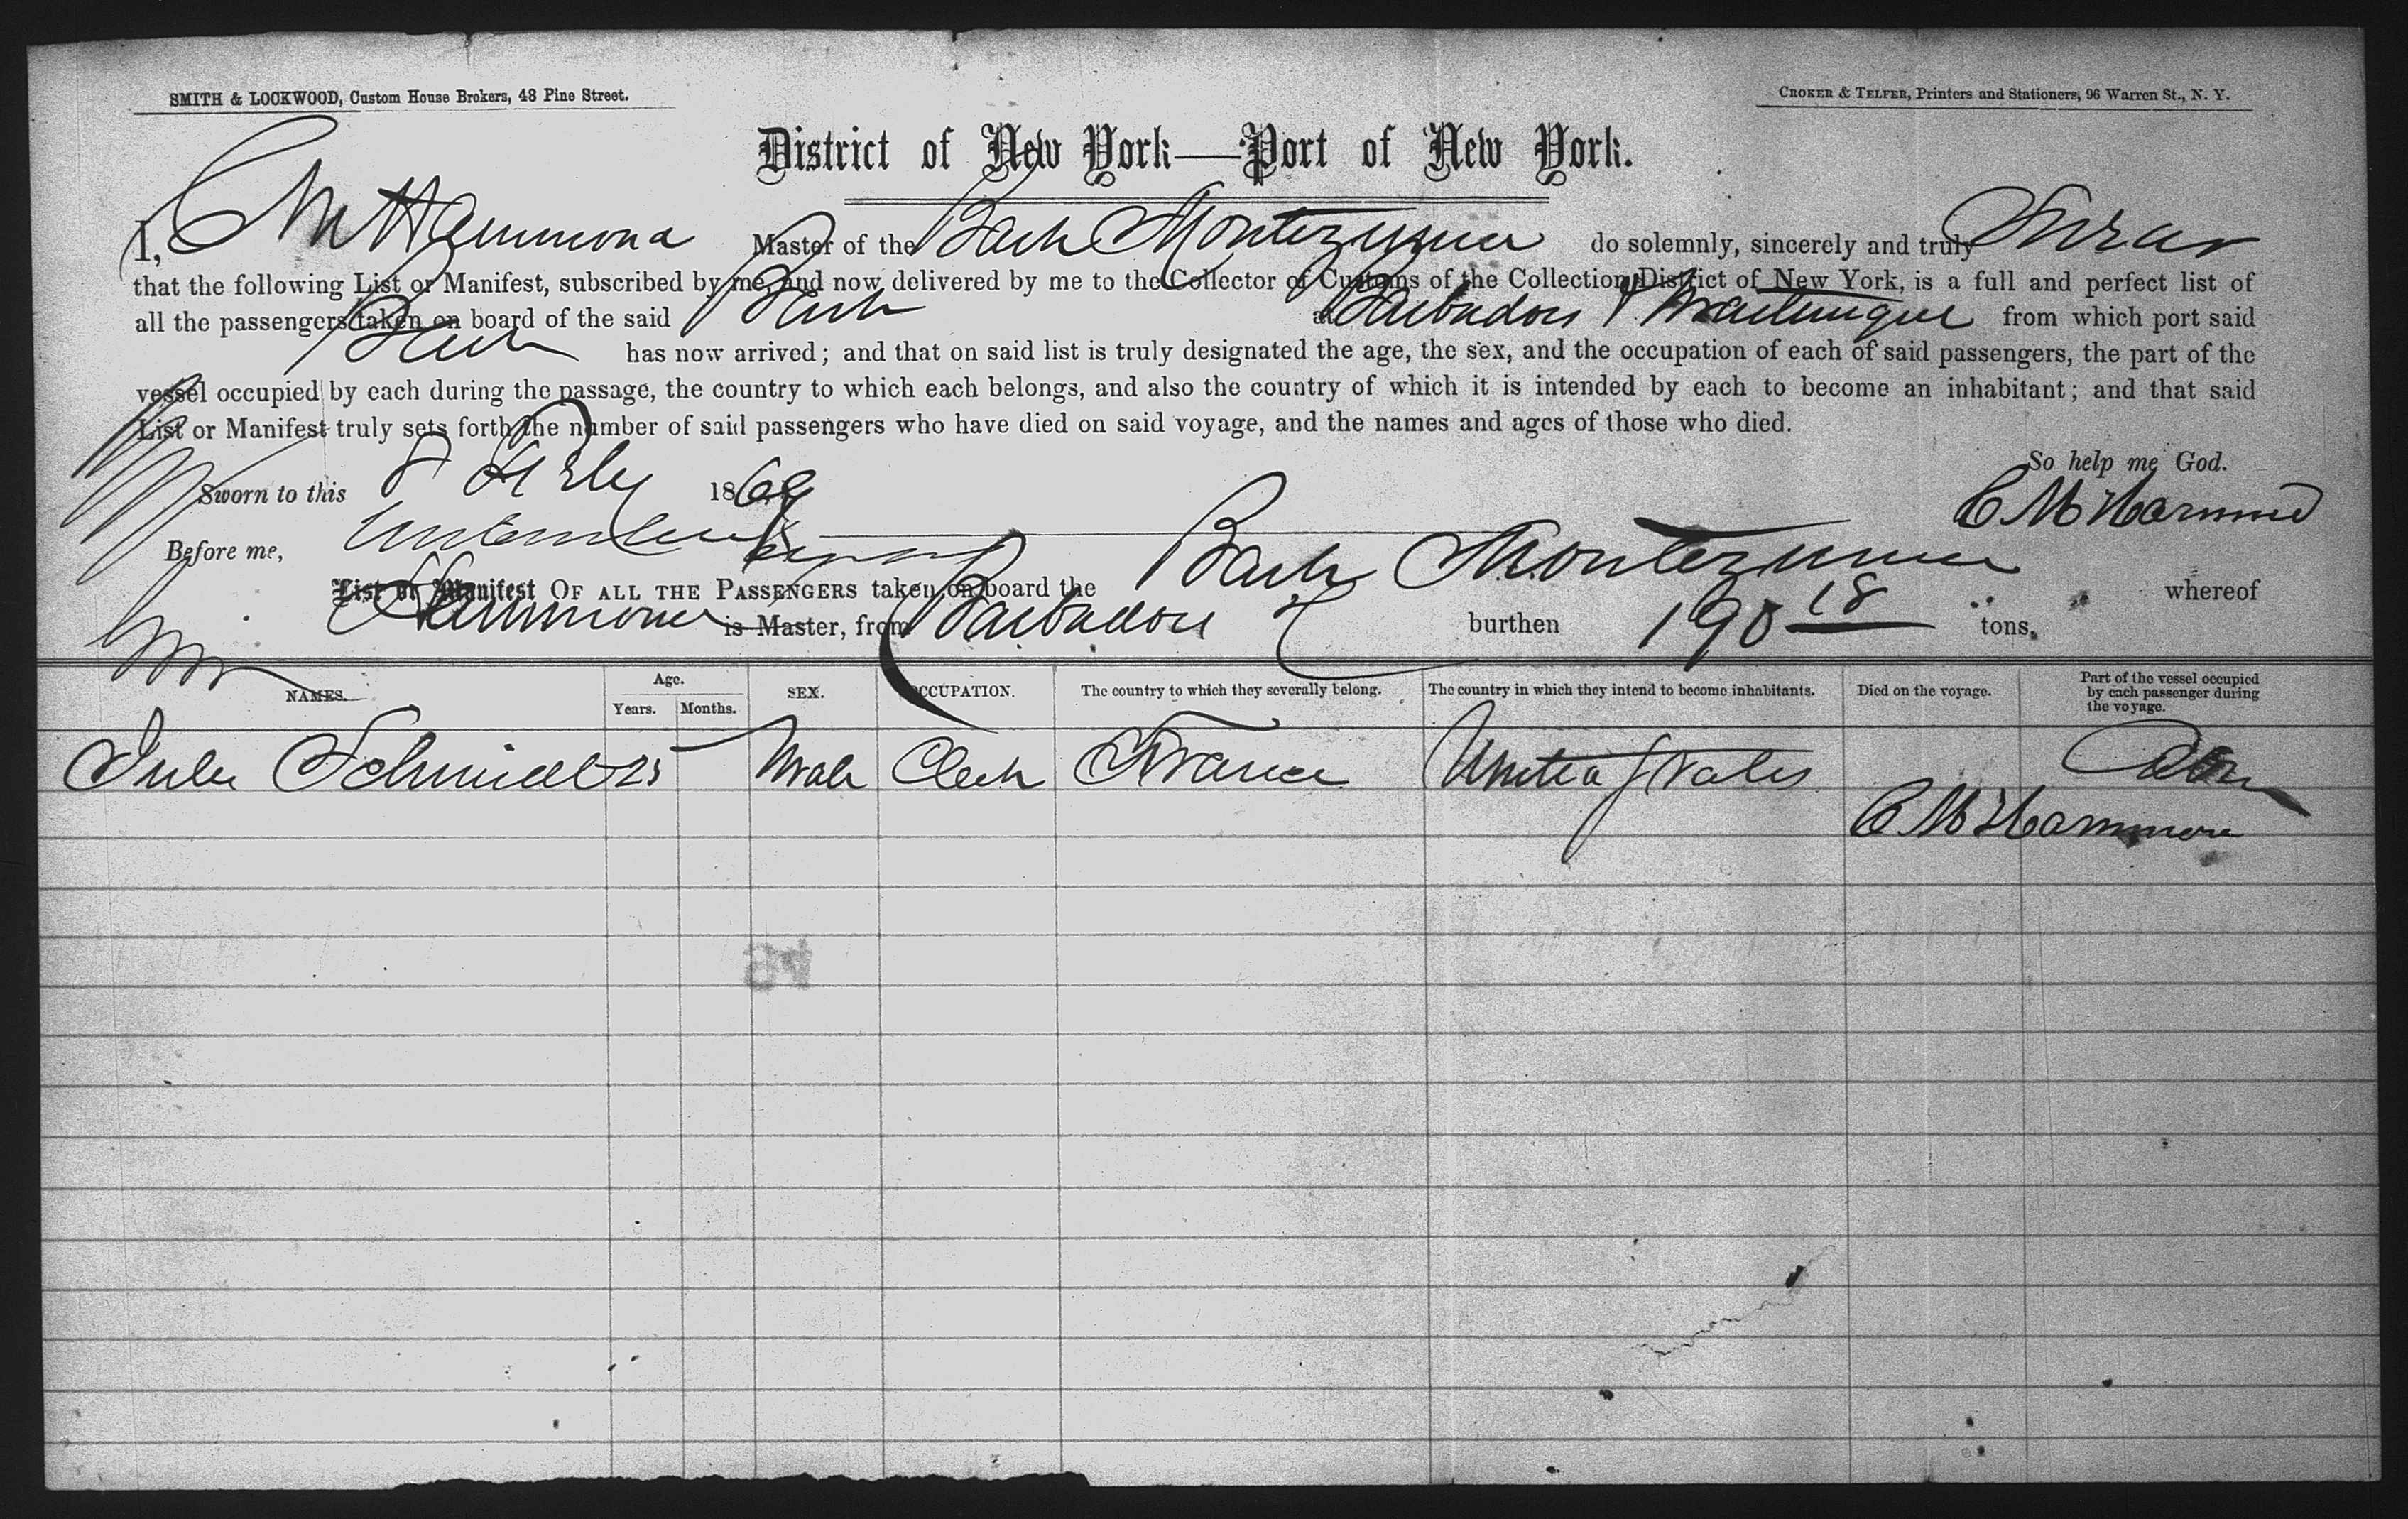 SMITH & LOCKWOOD, Custom House Brokers, 48 Pine Street.
CROKER & TELFER, Printers and Stationers, 96 Warren St., N. Y.
District of New York—Port of New York.
I, C M Hammond Master of the Bark Montezuma do solemnly, sincerely and truly Swear
that the following List or Manifest, subscribed by me, and now delivered by me to the Collector of Customs of the Collection District of New York, is a full and perfect list of
all the passengers taken on board of the said Bark at Barbadoes & Martinique from which port said
Bark has now arrived; and that on said list is truly designated the age, the sex, and the occupation of each of said passengers, the part of the
vessel occupied by each during the passage, the country to which each belongs, and also the country of which it is intended by each to become an inhabitant; and that said
List or Manifest truly sets forth the number of said passengers who have died on said voyage, and the names and ages of those who died.
So help me God.
Sworn to this 1869
C M Hammond
Before me,
List or Manifest OF ALL THE PASSENGERS taken on board the Bark Montezuma whereof
Hammond is Master, from Barbadoes burthen 190 18 tons.
NAMES. Age. Years. Months. SEX. OCCUPATION. The country to which they severally belong. The country in which they intend to become inhabitants. Died on the voyage. Part of the vessel occupied by each passenger during the voyage.
Jules Schmidt 25 Male Clerk France United States Cabin
C M Hammond